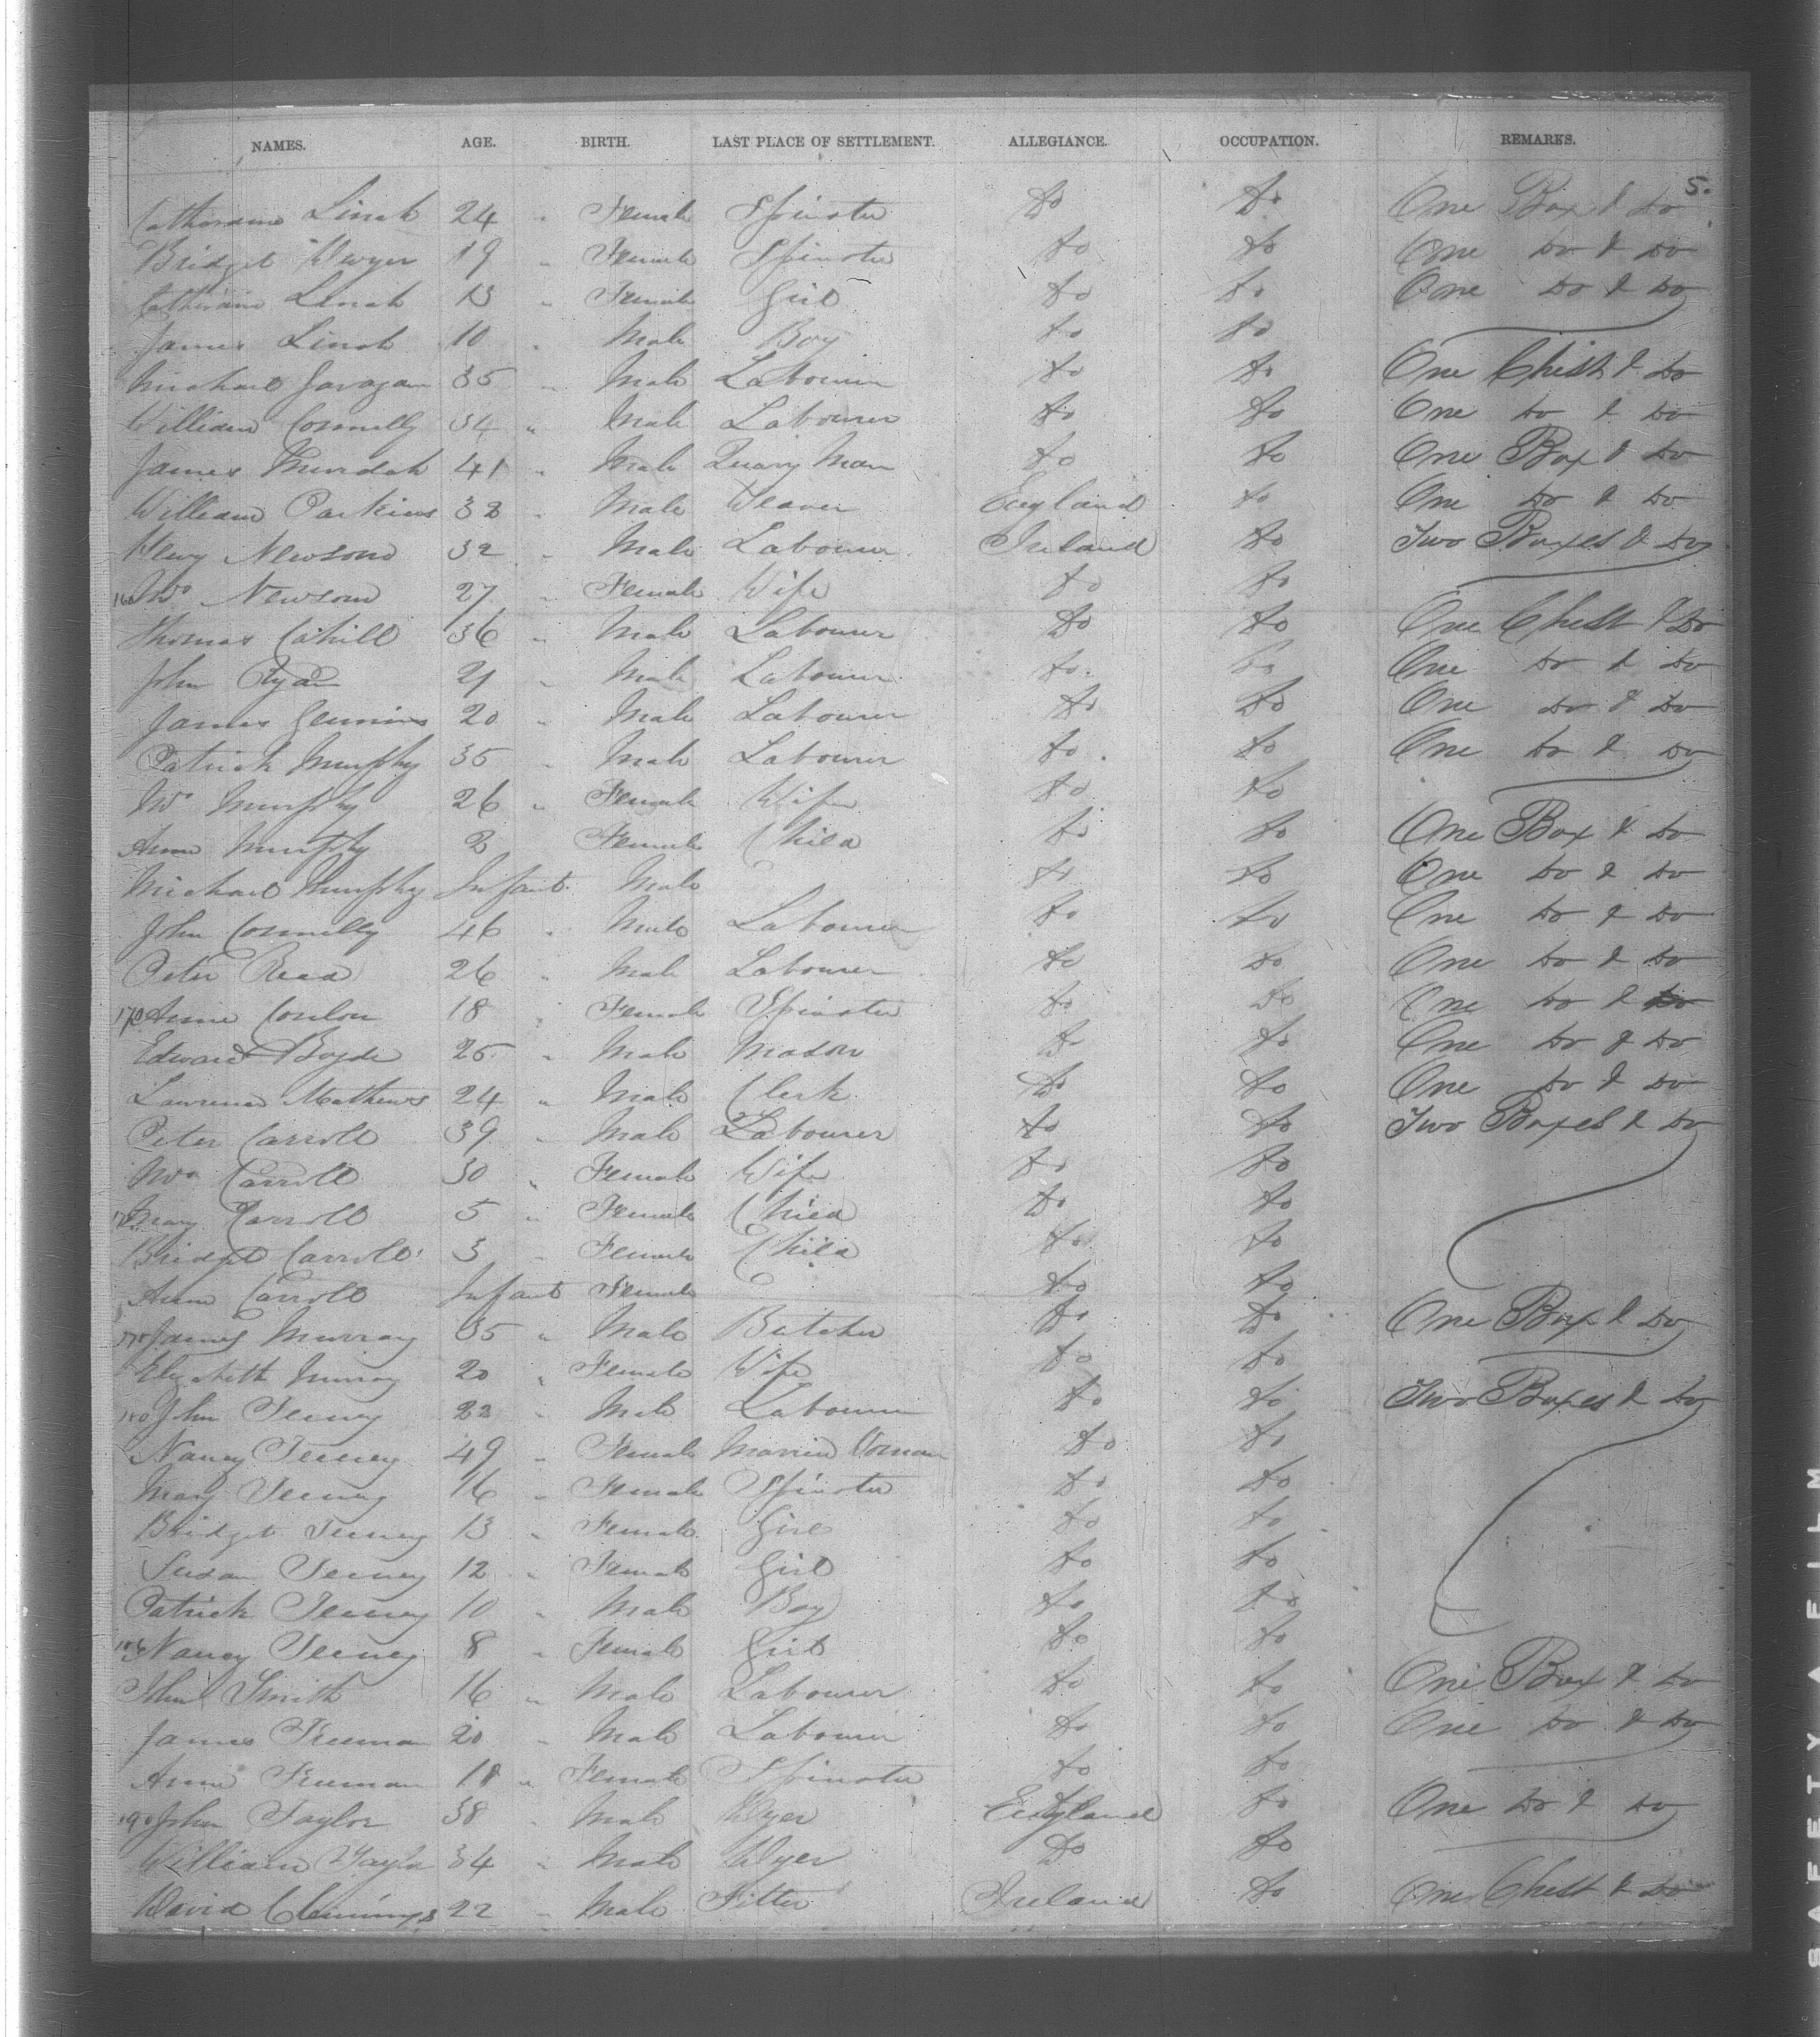 NAMES. AGE. BIRTH. LAST PLACE OF SETTLEMENT. ALLEGIANCE. OCCUPATION. REMARKS.
5.
Catharine Linch 24 " Female Spinster Do Do One Box & Do
Bridget Dwyer 19 " Female Spinster Do Do One Do & Do
Catharine Linch 13 " Female Girl Do Do One Do & Do
James Linch 10 " Male Boy Do Do
Michael Gavagan 35 " Male Labourer Do Do One Chest & Do
William Connelly 34 " Male Labourer Do Do One Do & Do
James Murdoch 41 " Male Quary Man Do Do One Box & Do
William Parkins 32 " Male Weaver England Do One Do & Do
Henry Newsom 32 " Male Labourer Ireland Do Two Boxes & Do
160 Mrs Newsom 27 " Female Wife Do Do
Thomas Cahill 36 " Male Labourer Do Do One Chest & Do
John Ryan 21 " Male Labourer Do Do One Do & Do
James Jennins 20 " Male Labourer Do Do One Do & Do
Patrick Murphy 35 " Male Labourer Do Do One Do & Do
Mrs Murphy 26 " Female Wife Do Do
Anne Murphy 2 Female Child Do Do One Box & Do
Michael Murphy Infant Male Do Do One Do & Do
John Connelly 46 " Male Labourer Do Do One Do & Do
Peter Read 26 " Male Labourer Do Do One Do & Do
170 Anne Conlon 18 " Female Spinster Do Do One Do & Do
Edward Boyde 25 " Male Mason Do Do One Do & Do
Lawrence Mathews 24 " Male Clerk Do Do One Do & Do
Peter Carroll 39 " Male Labourer Do Do Two Boxes & Do
Mrs Carroll 30 " Female Wife Do Do
Mary Carroll 5 " Female Child Do Do
Bridget Carroll 3 " Female Child Do Do
Anne Carroll Infant Female Do Do
James Murray 35 " Male Butcher Do Do One Box & Do
Elizabeth Murray 20 " Female Wife Do Do
180 John Feeney 22 " Male Labourer Do Do Two Boxes & Do
Nancy Feeney 49 " Female Married Woman Do Do
Mary Feeney 16 " Female Spinster Do Do
Bridget Feeney 13 " Female Girl Do Do
Susan Feeney 12 " Female Girl Do Do
Patrick Feeney 10 " Male Boy Do Do
Nancy Feeney 8 " Female Girl Do Do
John Smith 16 " Male Labourer Do Do One Box & Do
James Freeman 20 " Male Labourer Do Do One Do & Do
Anne Freeman 18 " Female Spinster Do Do
190 John Taylor 38 " Male Dyer England Do One Do & Do
William Taylor 34 " Male Dyer Do Do
David Clemmings 22 " Male Fitter Ireland Do One Chest & Do
SAFETY FILM